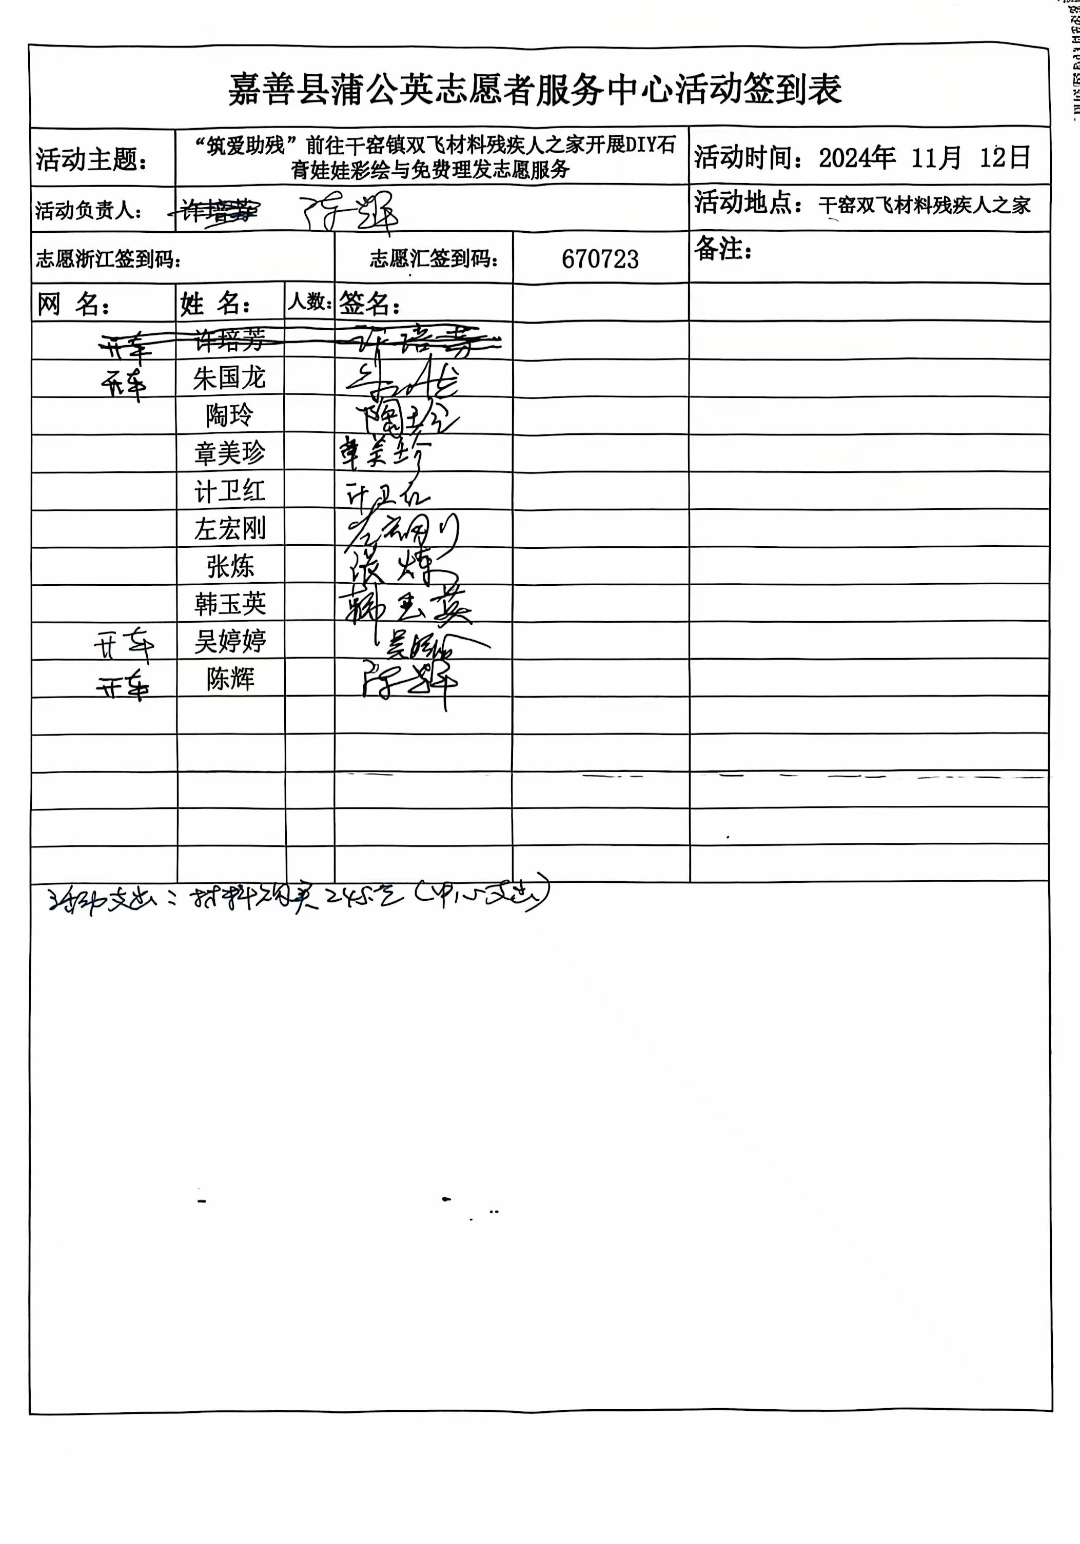 嘉善县蒲公英志愿者服务中心活动签到表
活动主题： “筑爱助残”前往干窑镇双飞材料残疾人之家开展DIY石膏娃娃彩绘与免费理发志愿服务 活动时间：2024年 11月 12日
活动负责人： 许培芳 陈辉 活动地点：干窑双飞材料残疾人之家
志愿浙江签到码： 志愿汇签到码： 670723 备注：
网 名： 姓 名： 人数： 签名：
开车 许培芳 许培芳
开车 朱国龙
陶玲 陶玲
章美珍 章美珍
计卫红 计卫红
左宏刚 左宏刚
张炼 张炼
韩玉英 韩玉英
开车 吴婷婷
开车 陈辉 陈辉
活动支出：材料购买245元（中心支出）